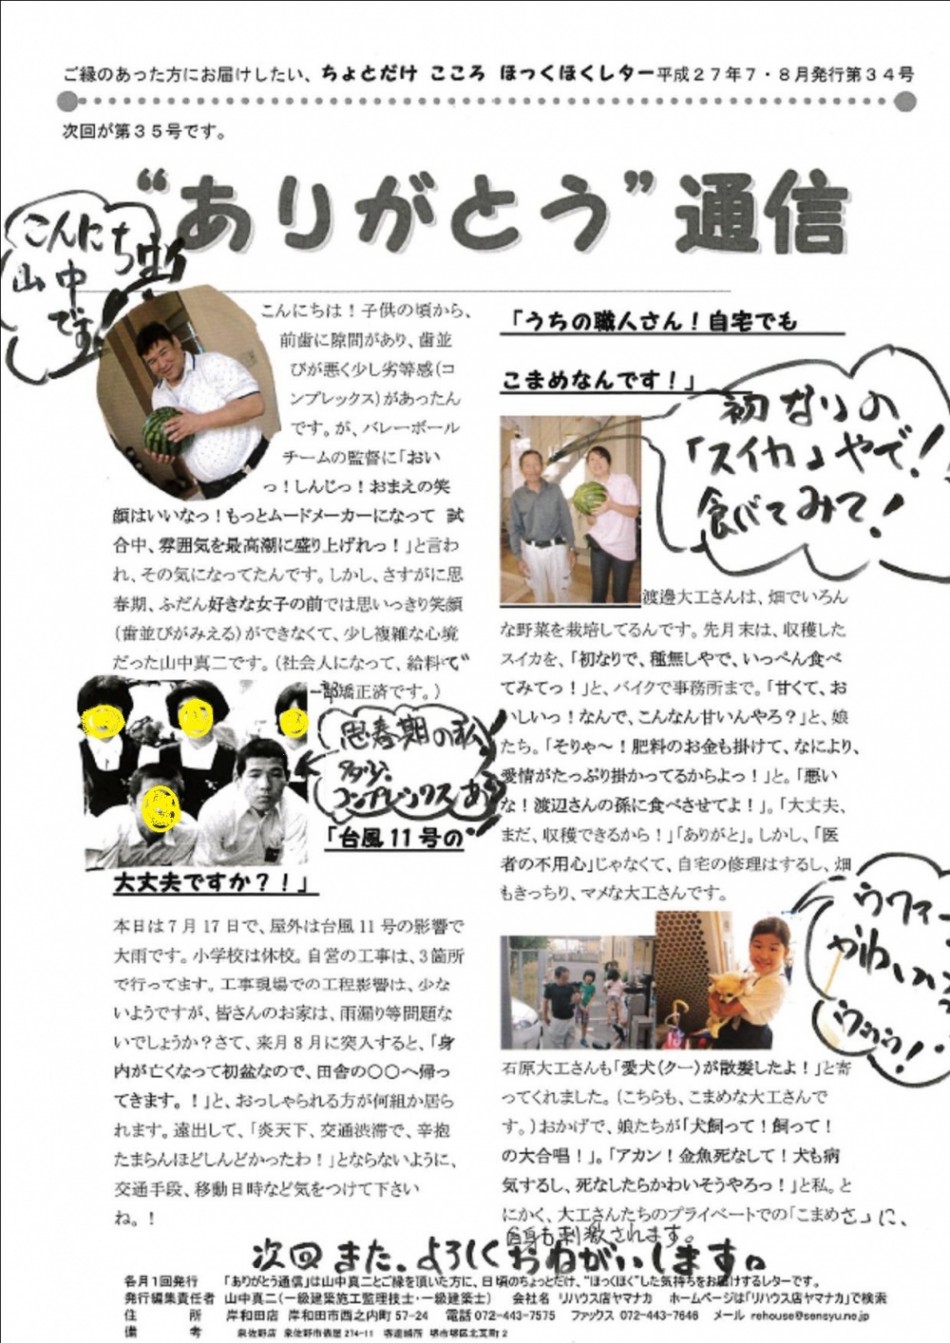 ご縁のあった方にお届けしたい、ちょとだけ こころ ほっくほくレター平成27年7・8月発行第34号
次回が第35号です。
“ありがとう”通信
こんにちは
山中
です
こんにちは！子供の頃から、
前歯に隙間があり、歯並
びが悪く少し劣等感（コ
ンプレックス）があったん
です。が、バレーボール
チームの監督に「おい
っ！しんじっ！おまえの笑
顔はいいなっ！もっとムードメーカーになって 試
合中、雰囲気を最高潮に盛り上げれっ！」と言わ
れ、その気になってたんです。しかし、さすがに思
春期、ふだん好きな女子の前では思いっきり笑顔
（歯並びがみえる）ができなくて、少し複雑な心境
だった山中真二です。（社会人になって、給料で
一部矯正済です。）
思春期の私
多少、
コンプレックス あり
「台風11号の
大丈夫ですか？！」
本日は7月17日で、屋外は台風11号の影響で
大雨です。小学校は休校。自営の工事は、3箇所
で行ってます。工事現場での工程影響は、少な
いようですが、皆さんのお家は、雨漏り等問題な
いでしょうか？さて、来月8月に突入すると、「身
内が亡くなって初盆なので、田舎の〇〇へ帰っ
てきます。！」と、おっしゃられる方が何組か居ら
れます。遠出して、「炎天下、交通渋滞で、辛抱
たまらんほどしんどかったわ！」とならないように、
交通手段、移動日時など気をつけて下さい
ね。！
「うちの職人さん！自宅でも
こまめなんです！」
初なりの
「スイカ」やで！
食べてみて！
渡邊大工さんは、畑でいろん
な野菜を栽培してるんです。先月末は、収穫した
スイカを、「初なりで、種無しやで、いっぺん食べ
てみてっ！」と、バイクで事務所まで。「甘くて、お
いしいっ！なんで、こんなん甘いんやろ？」と、娘
たち。「そりゃ～！肥料のお金も掛けて、なにより、
愛情がたっぷり掛かってるからよっ！」と。「悪い
な！渡辺さんの孫に食べさせてよ！」。「大丈夫、
まだ、収穫できるから！」「ありがと」。しかし、「医
者の不用心」じゃなくて、自宅の修理はするし、畑
もきっちり、マメな大工さんです。
ウワァー
かわいい
石原大工さんも「愛犬（クー）が散髪したよ！」と寄
ってくれました。（こちらも、こまめな大工さんで
す。）おかげで、娘たちが「犬飼って！飼って！
の大合唱！」。「アカン！金魚死なして！犬も病
気するし、死なしたらかわいそうやろっ！」と私。と
にかく、大工さんたちのプライベートでの「こまめさ」に、
自身も刺激されます。
次回また、よろしくおねがいします。
各月1回発行 「ありがとう通信」は山中真二とご縁を頂いた方に、日頃のちょっとだけ、“ほっくほく”した気持ちをお届けするレターです。
発行編集責任者 山中真二（一級建築施工監理技士・一級建築士） 会社名 リハウス店ヤマナカ ホームページは「リハウス店ヤマナカ」で検索
住 所 岸和田店 岸和田市西之内町57-24 電話072-443-7575 ファックス 072-443-7646 メール rehouse@sensyu.ne.jp
備 考 泉佐野店